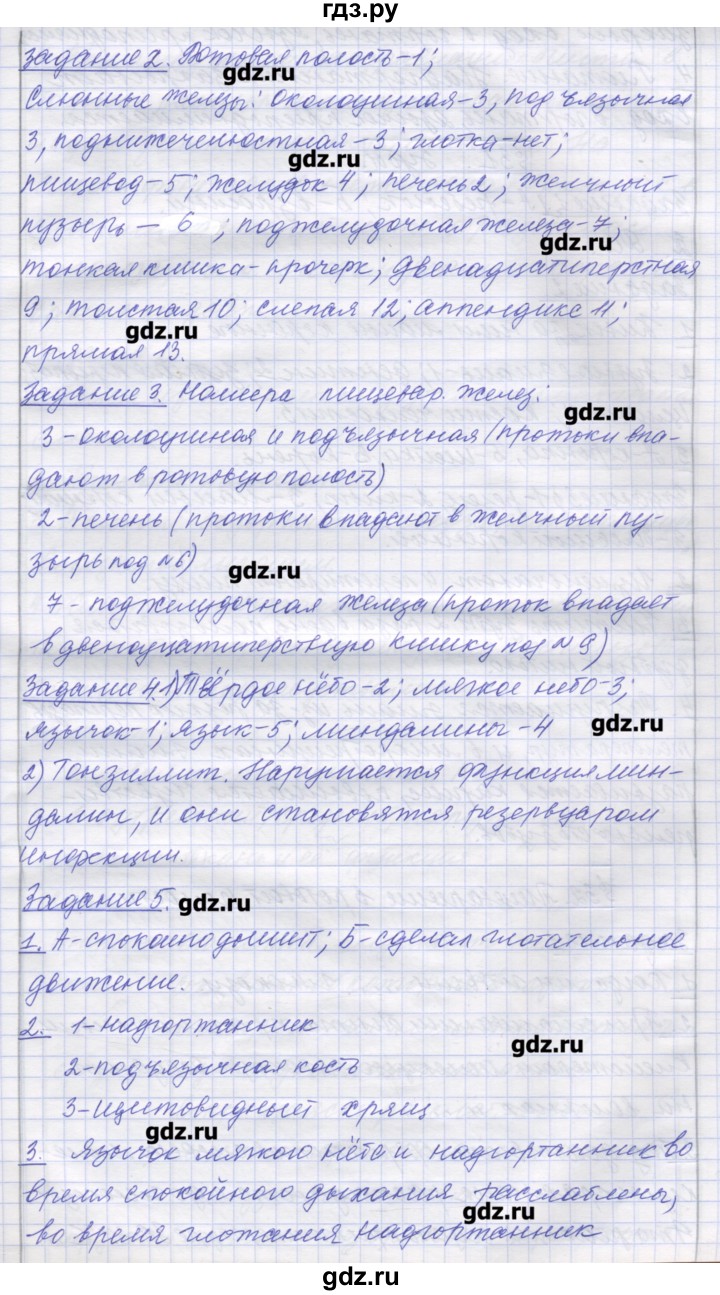 гдз.ру
Задание 2. Ротовая полость-1;
gdz.ru
Слюнные железы: околоушная-3, подъязычная
3, поднижечелюстная-3; глотка-нет;
gdz.ru
пищевод-5; желудок 4; печень 2; желчный
пузырь — 6 ; поджелудочная железа-7;
gdz.ru
тонкая кишка-прочерк; двенадцатиперстная
9; толстая 10; слепая 12; аппендикс 11;
gdz.ru
прямая 13.
Задание 3. Номера пищевар. желез:
gdz.ru
3-околоушная и подъязычная (протоки впа-
дают в ротовую полость)
2-печень (протоки впадают в желчный пу-
зырь под №6)
gdz.ru
7- поджелудочная железа (проток впадает
в двенадцатиперстную кишку под №9)
Задание 4. 1) Твёрдое нёбо-2; мягкое небо-3;
язычок-1; язык-5; миндалины-4
gdz.ru
2) Тонзиллит. Нарушается функция мин-
далин, и они становятся резервуаром
инфекции.
Задание 5.
gdz.ru
1. А-спокойно дышит; Б-сделал глотательное
движение.
2. 1-надгортанник
gdz.ru
2-подъязычная кость
3-щитовидный хрящ
gdz.ru
3. Язычок мягкого нёба и надгортанник во
время спокойного дыхания расслаблены,
gdz.ru
во время глотания надгортанник
gdz.ru